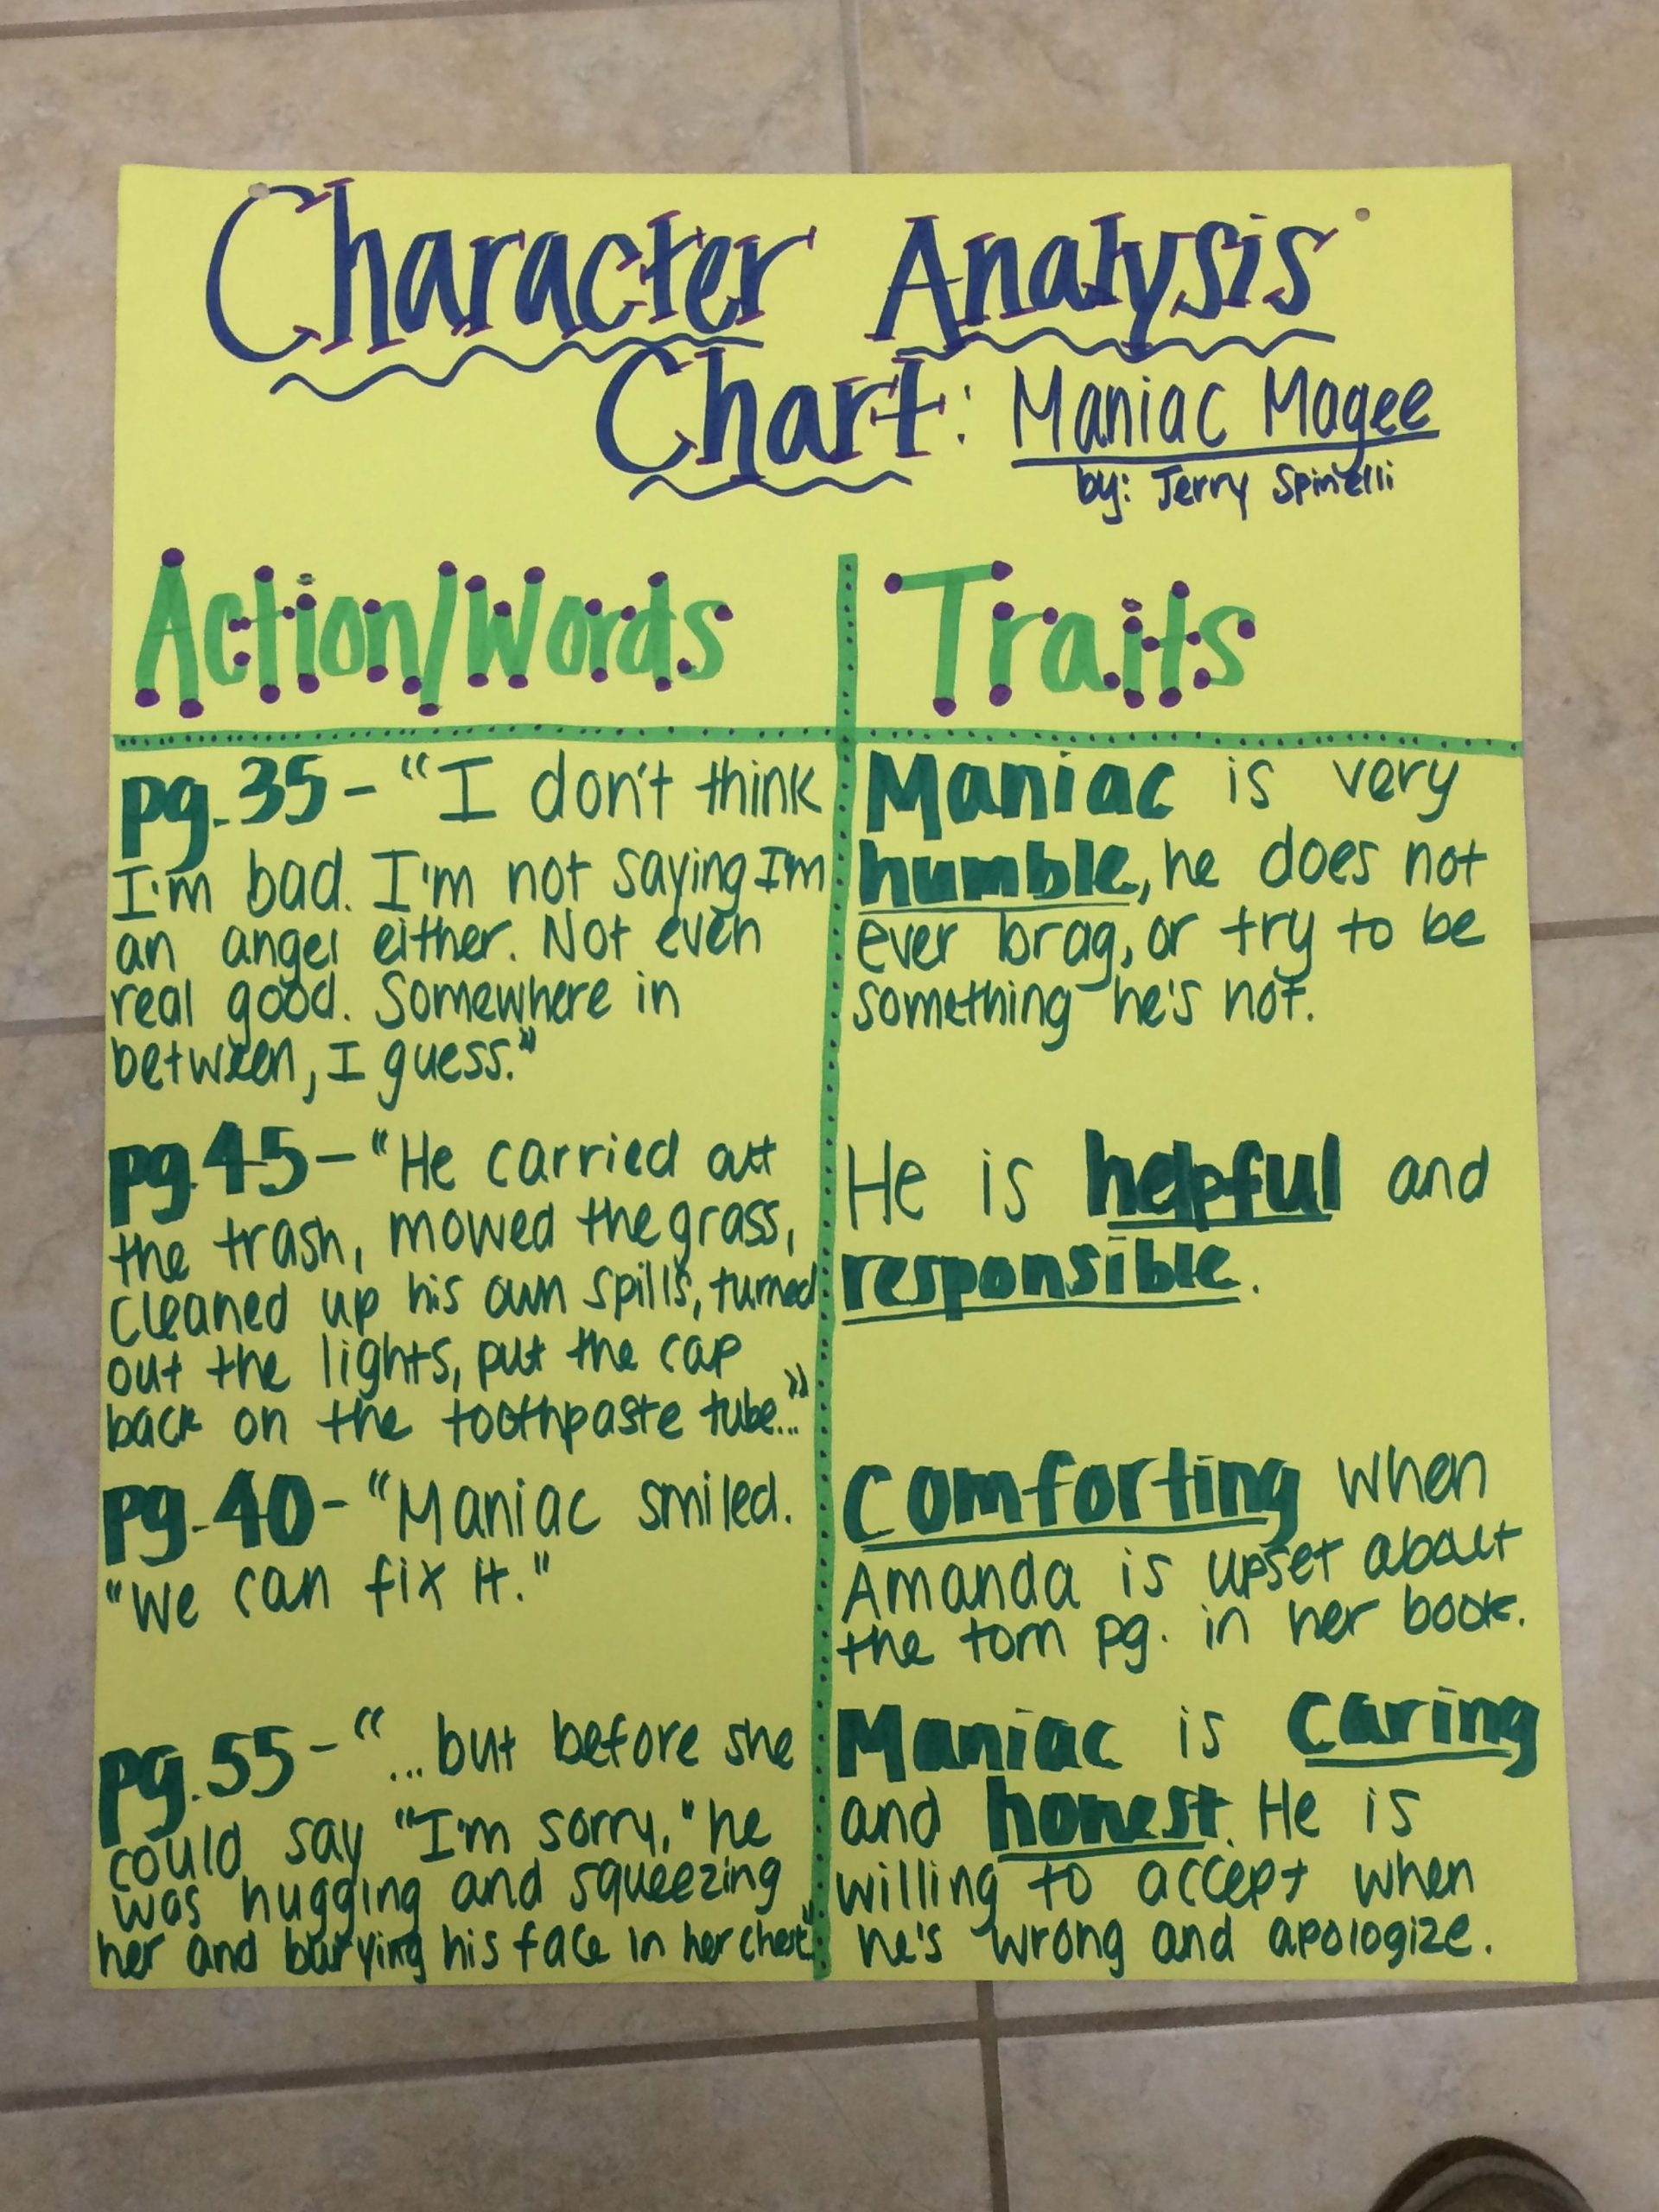 Character Analysis
Chart: Maniac Magee
by: Jerry Spinelli
Action/Words
Traits
pg. 35 - "I don't think
I'm bad. I'm not saying I'm
an angel either. Not even
real good. Somewhere in
between, I guess."
Maniac is very
humble, he does not
ever brag, or try to be
something he's not.
pg. 45 - "He carried out
the trash, mowed the grass,
cleaned up his own spills, turned
out the lights, put the cap
back on the toothpaste tube..."
He is helpful and
responsible.
pg. 40 - "Maniac smiled.
"We can fix it."
Comforting when
Amanda is upset about
the torn pg. in her book.
pg. 55 - "...but before she
could say "I'm sorry," he
was hugging and squeezing
her and burying his face in her chest"
Maniac is caring
and honest. He is
willing to accept when
he's wrong and apologize.